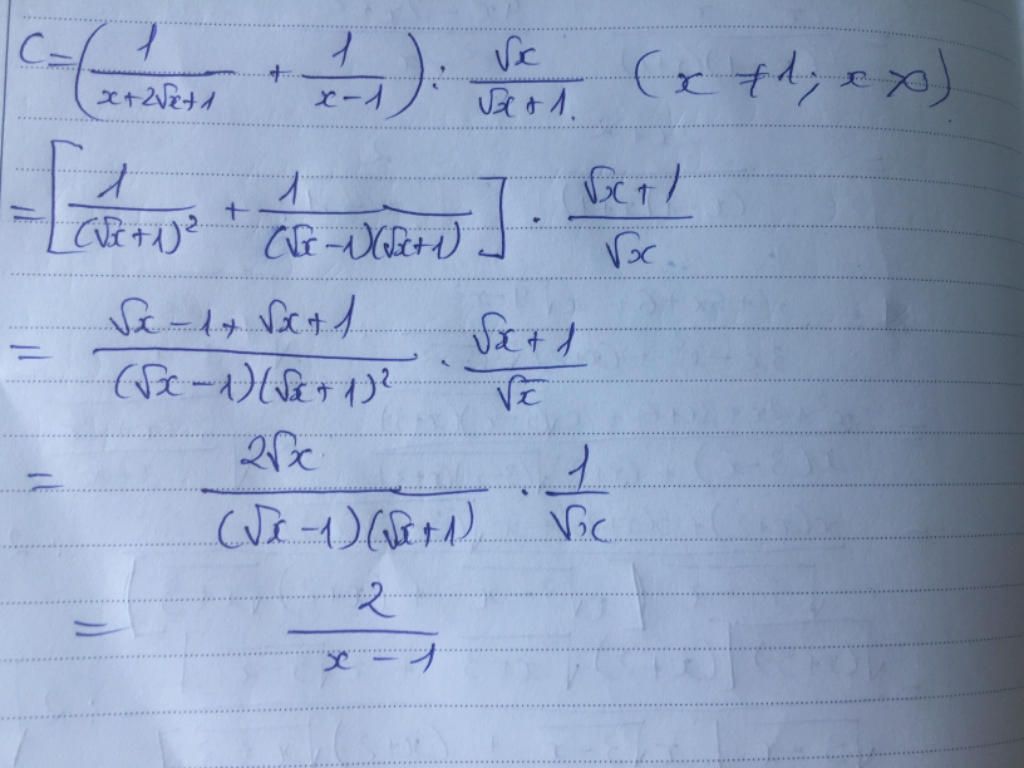 C = (1/(x+2√x+1) + 1/(x-1)) : √x/(√x+1) (x ≠ 1; x > 0)
= [1/(√x+1)² + 1/((√x-1)(√x+1))] · (√x+1)/√x
= (√x-1+√x+1)/((√x-1)(√x+1)²) · (√x+1)/√x
= 2√x/((√x-1)(√x+1)) · 1/√x
= 2/(x-1)